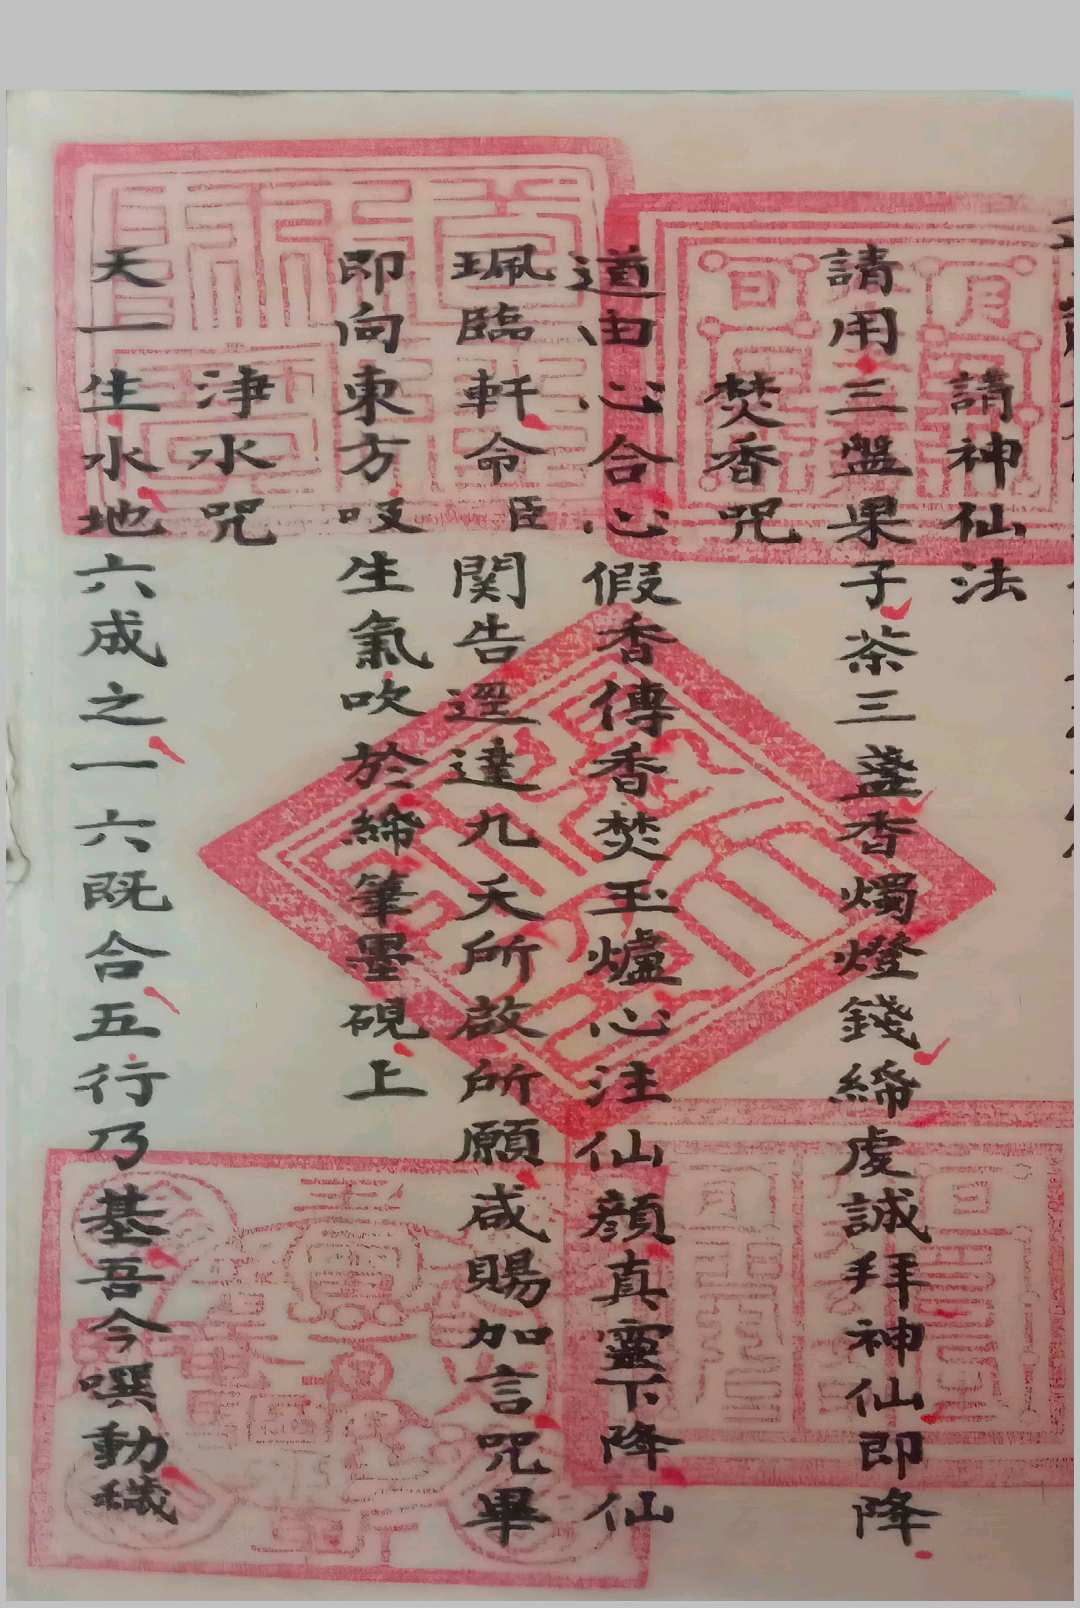 請神仙法
請用三盤果子茶三盞香燭燈錢締虔誠拜神仙即降
焚香咒
道由心合心假香傳香焚玉爐心注仙顏真靈下降仙
珮臨軒令臣関告逕達九天所啟所願咸賜加言咒畢
即向東方吱生氣吹於締筆墨硯上
淨水咒
天一生水地六成之一六既合五行乃基吾今噀動穢